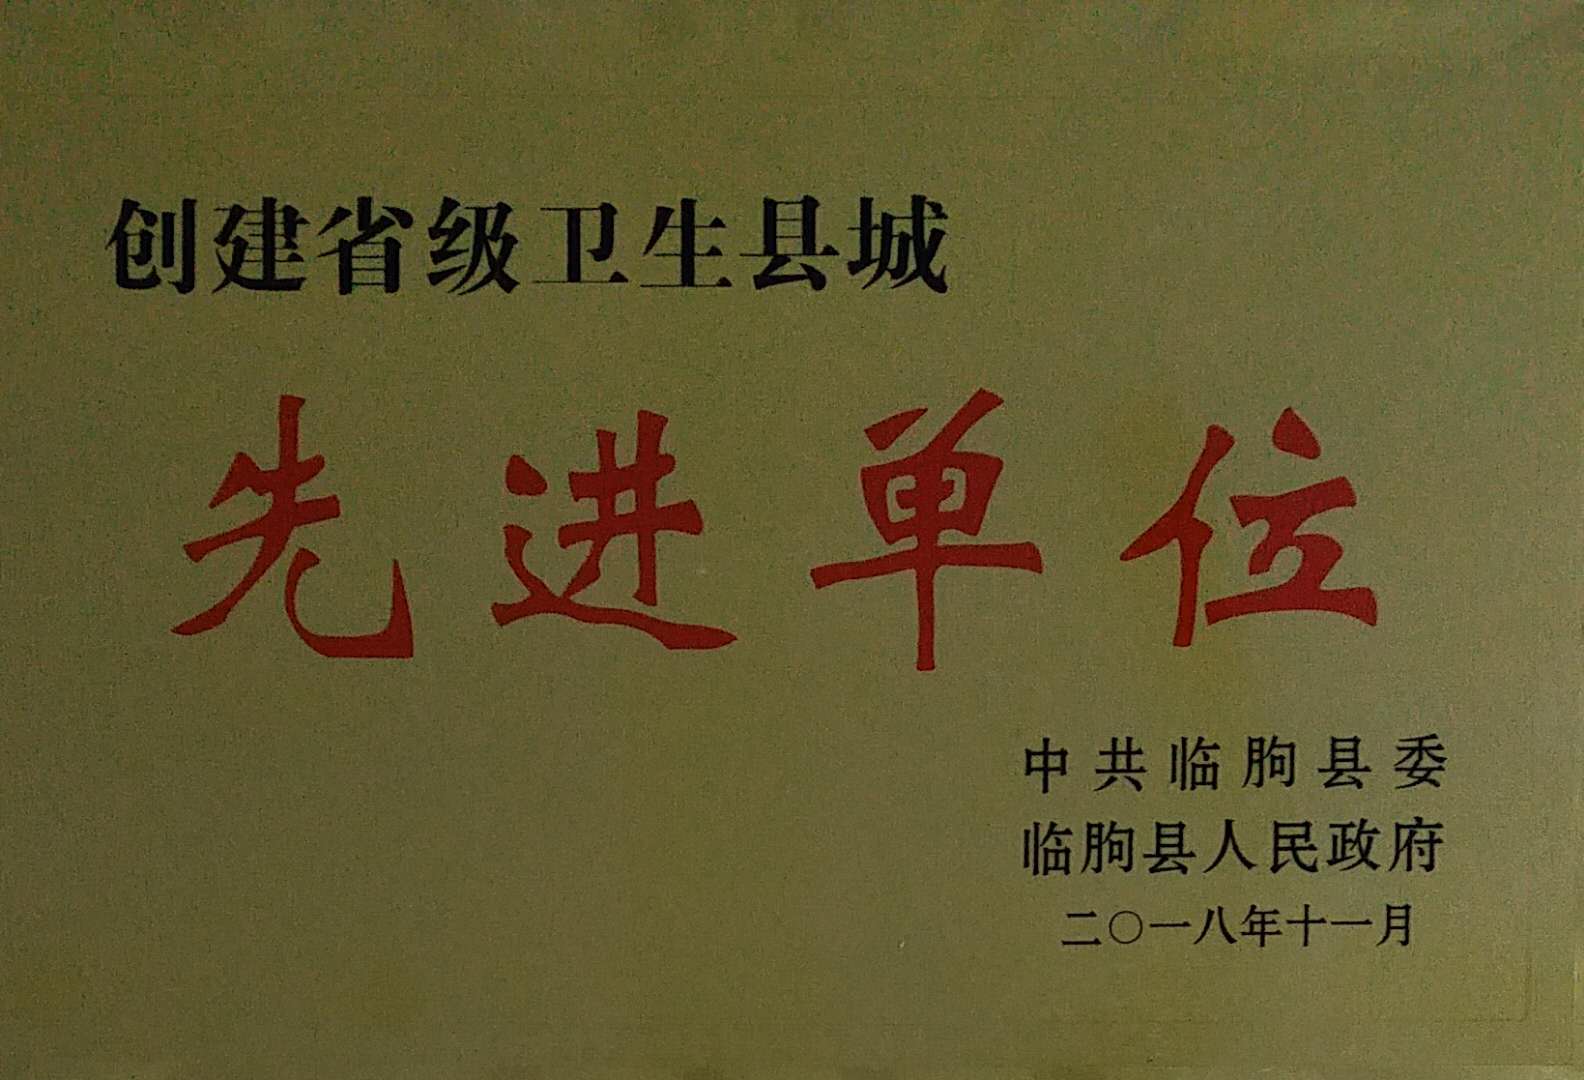 创建省级卫生县城
先进单位
中共临朐县委
临朐县人民政府
二〇一八年十一月